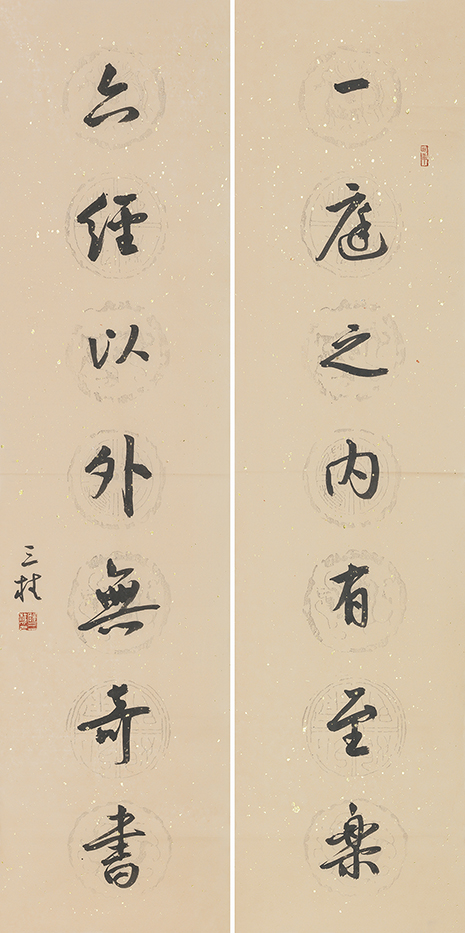 一庭之内有至樂
六經以外無奇書
三桂